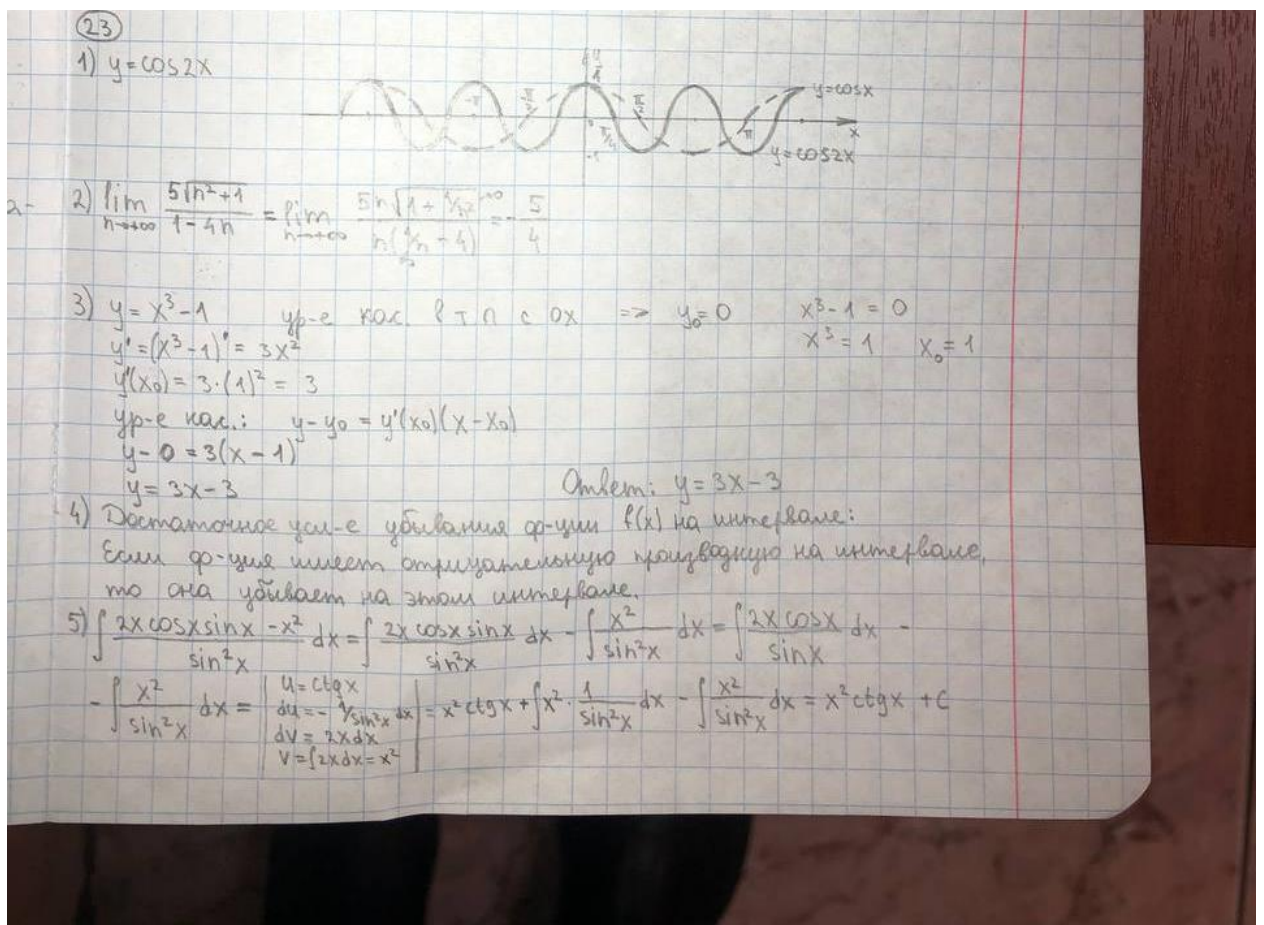 23
1) y=cos2x
y
1
-π -π/2 π/4 π/2 π x
-1
y=cosx
y=cos2x
2) lim n→+∞ 5√(n²+1) / (1-4n) = lim n→+∞ 5n√(1+1/n²)→0 / n(1/n-4) = -5/4
3) y=x³-1 ур-е кас. в т п с OX => y₀=0 x³-1=0
y'=(x³-1)'=3x² x³=1 x₀=1
y'(x₀)=3·(1)²=3
ур-е кас.: y-y₀=y'(x₀)(x-x₀)
y-0=3(x-1)
y=3x-3 Ответ: y=3x-3
4) Достаточное усл-е убывания ф-ции f(x) на интервале:
Если ф-ция имеет отрицательную производную на интервале,
то она убывает на этом интервале.
5) ∫ (2x cosx sinx - x²)/sin²x dx = ∫ (2x cosx sinx)/sin²x dx - ∫ x²/sin²x dx = ∫ (2x cosx)/sinx dx -
- ∫ x²/sin²x dx = | u=ctgx
du=-1/sin²x dx
dv=2xdx
v=∫2xdx=x² | = x²ctgx + ∫x²·1/sin²x dx - ∫ x²/sin²x dx = x²ctgx + C